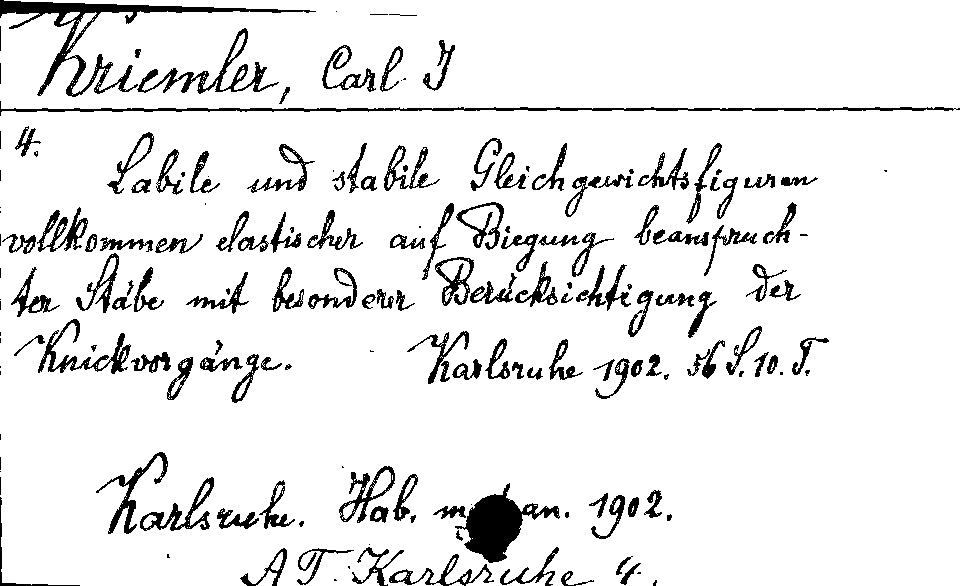 Kriemler, Carl J
4.
Labile und stabile Gleichgewichtsfiguren
vollkommen elastischer auf Biegung beanspruch-
ter Stäbe mit besonderer Berücksichtigung der
Knickvorgänge. Karlsruhe 1902. 56 S. 10. T.
Karlsruhe. Hab. an. 1902.
AT. Karlsruhe 4.